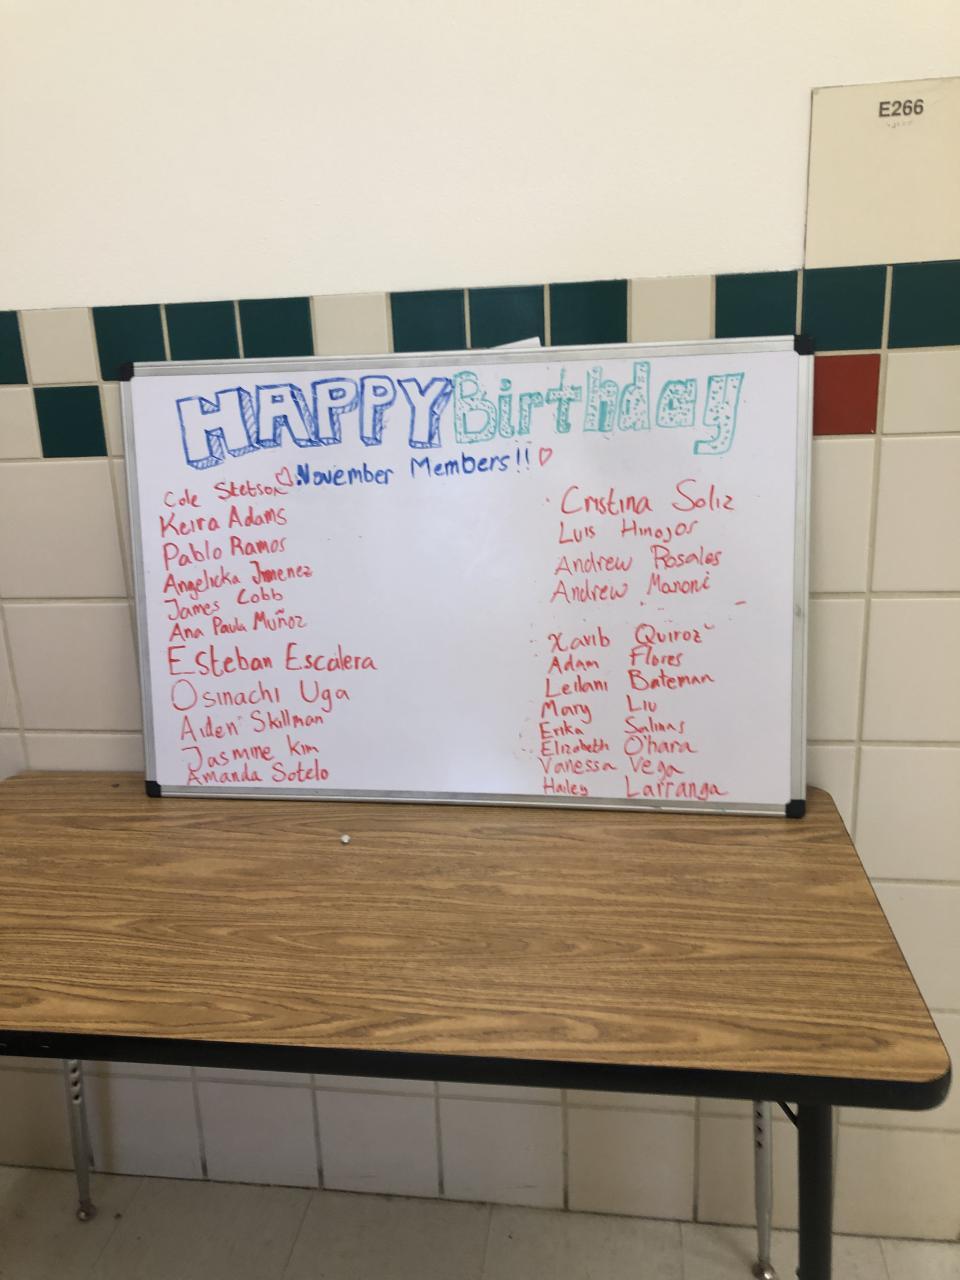 E266
HAPPY Birthday
November Members!!
Cole Stetson
Keira Adams
Pablo Ramos
Angelicka Jimenez
James Cobb
Ana Paula Muñoz
Esteban Escalera
Osinachi Uga
Aiden Skillman
Jasmine Kim
Amanda Sotelo
Cristina Soliz
Luis Hinojos
Andrew Rosales
Andrew Manoni
Xavib Quiroz
Adam Flores
Leilani Bateman
Mary Liu
Erika Salinas
Elizabeth O'hara
Vanessa Vega
Hailey Larranga